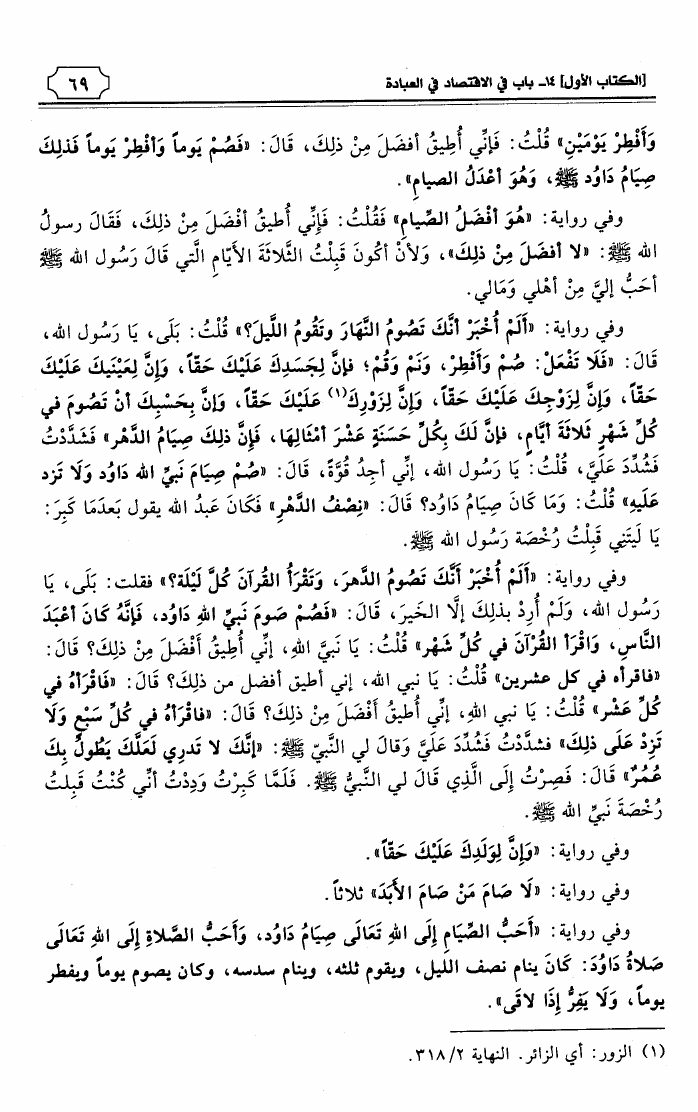 [الكتاب الأول] ١٤ـ باب في الاقتصاد في العبادة
٦٩
وَأَفْطِرْ يَوْمَيْنِ» قُلْتُ: فَإنِّي أُطِيقُ أفضَلَ مِنْ ذلِكَ، قَالَ: «فَصُمْ يَوماً وَأفْطِرْ يَوماً فَذلِكَ
صِيَامُ دَاوُد ﷺ، وَهُوَ أعْدَلُ الصيامِ».
وفي رواية: «هُوَ أفْضَلُ الصِّيامِ» فَقُلْتُ: فَإنِّي أُطيقُ أفْضَلَ مِنْ ذلِكَ، فَقَالَ رسولُ
الله ﷺ: «لا أفضَلَ مِنْ ذلِكَ»، وَلأنْ أكُونَ قَبِلْتُ الثَّلاثَةَ الأيّامِ الَّتي قَالَ رَسُول الله ﷺ
أحَبُّ إليَّ مِنْ أهْلي وَمَالي.
وفي رواية: «أَلَمْ أُخْبَرْ أنَّكَ تَصُومُ النَّهَارَ وتَقُومُ اللَّيلَ؟» قُلْتُ: بَلَى، يَا رَسُول الله،
قَالَ: «فَلَا تَفْعَلْ: صُمْ وَأَفْطِرْ، وَنَمْ وَقُمْ؛ فإنَّ لِجَسَدِكَ عَلَيْكَ حَقّاً، وَإِنَّ لِعَيْنَيكَ عَلَيْكَ
حَقّاً، وَإِنَّ لِزَوْجِكَ عَلَيْكَ حَقّاً، وَإِنَّ لِزَوْرِكَ(١) عَلَيْكَ حَقّاً، وَإنَّ بِحَسْبِكَ أنْ تَصُومَ في
كُلِّ شَهْرٍ ثَلاثَةَ أيَّامٍ، فإنَّ لَكَ بِكُلِّ حَسَنَةٍ عَشْرَ أمْثَالِهَا، فَإِنَّ ذلِكَ صِيَامُ الدَّهْر» فَشَدَّدْتُ
فَشُدِّدَ عَلَيَّ، قُلْتُ: يَا رَسُول الله، إنِّي أجِدُ قُوَّةً، قَالَ: «صُمْ صِيَامَ نَبيِّ الله دَاوُد وَلَا تَزد
عَلَيهِ» قُلْتُ: وَمَا كَانَ صِيَامُ دَاوُد؟ قَالَ: «نِصْفُ الدَّهْرِ» فَكَانَ عَبدُ الله يقول بَعدَمَا كَبِرَ:
يَا لَيتَنِي قَبِلْتُ رُخْصَة رَسُول الله ﷺ.
وفي رواية: «أَلَمْ أُخْبَرْ أنَّكَ تَصُومُ الدَّهرَ، وَتَقْرَأُ القُرآن كُلَّ لَيْلَة؟» فقلت: بَلَى، يَا
رَسُول الله، وَلَمْ أُرِدْ بذلِكَ إلَّا الخَيرَ، قَالَ: «فَصُمْ صَومَ نَبيِّ اللهِ دَاوُد، فَإِنَّهُ كَانَ أعْبَدَ
النَّاسِ، وَاقْرَأ القُرْآنَ في كُلِّ شَهْر» قُلْتُ: يَا نَبيَّ اللهِ، إنِّي أُطِيقُ أَفْضَلَ مِنْ ذلِكَ؟ قَالَ:
«فاقرأه في كل عشرين» قُلْتُ: يا نبي الله، إني أطيق أفضل من ذلك؟ قَالَ: «فَاقْرَأهُ في
كُلِّ عَشْر» قُلْتُ: يَا نبي اللهِ، إنِّي أُطيقُ أَفْضَلَ مِنْ ذلِكَ؟ قَالَ: «فاقْرَأهُ في كُلِّ سَبْعٍ وَلَا
تَزِدْ عَلَى ذلِكَ» فشدَّدْتُ فَشُدِّدَ عَلَيَّ وَقالَ لي النَّبيّ ﷺ: «إنَّكَ لا تَدرِي لَعَلَّكَ يَطُولُ بِكَ
عُمُرٌ» قَالَ: فَصِرْتُ إِلَى الَّذِي قَالَ لي النَّبيُّ ﷺ. فَلَمَّا كَبِرْتُ وَدِدْتُ أنِّي كُنْتُ قَبِلتُ
رُخْصَةَ نَبيِّ الله ﷺ.
وفي رواية: «وَإِنَّ لِوَلَدِكَ عَلَيْكَ حَقّاً».
وفي رواية: «لَا صَامَ مَنْ صَامَ الأبَدَ» ثلاثاً.
وفي رواية: «أَحَبُّ الصِّيَامِ إِلَى اللهِ تَعَالَى صِيَامُ دَاوُد، وَأَحَبُّ الصَّلاةِ إِلَى اللهِ تَعَالَى
صَلاةُ دَاوُدَ: كَانَ ينام نصف الليل، ويقوم ثلثه، وينام سدسه، وكان يصوم يوماً ويفطر
يوماً، وَلَا يَفِرُّ إِذَا لاقَى».
(١) الزور: أي الزائر. النهاية ٣١٨/٢.